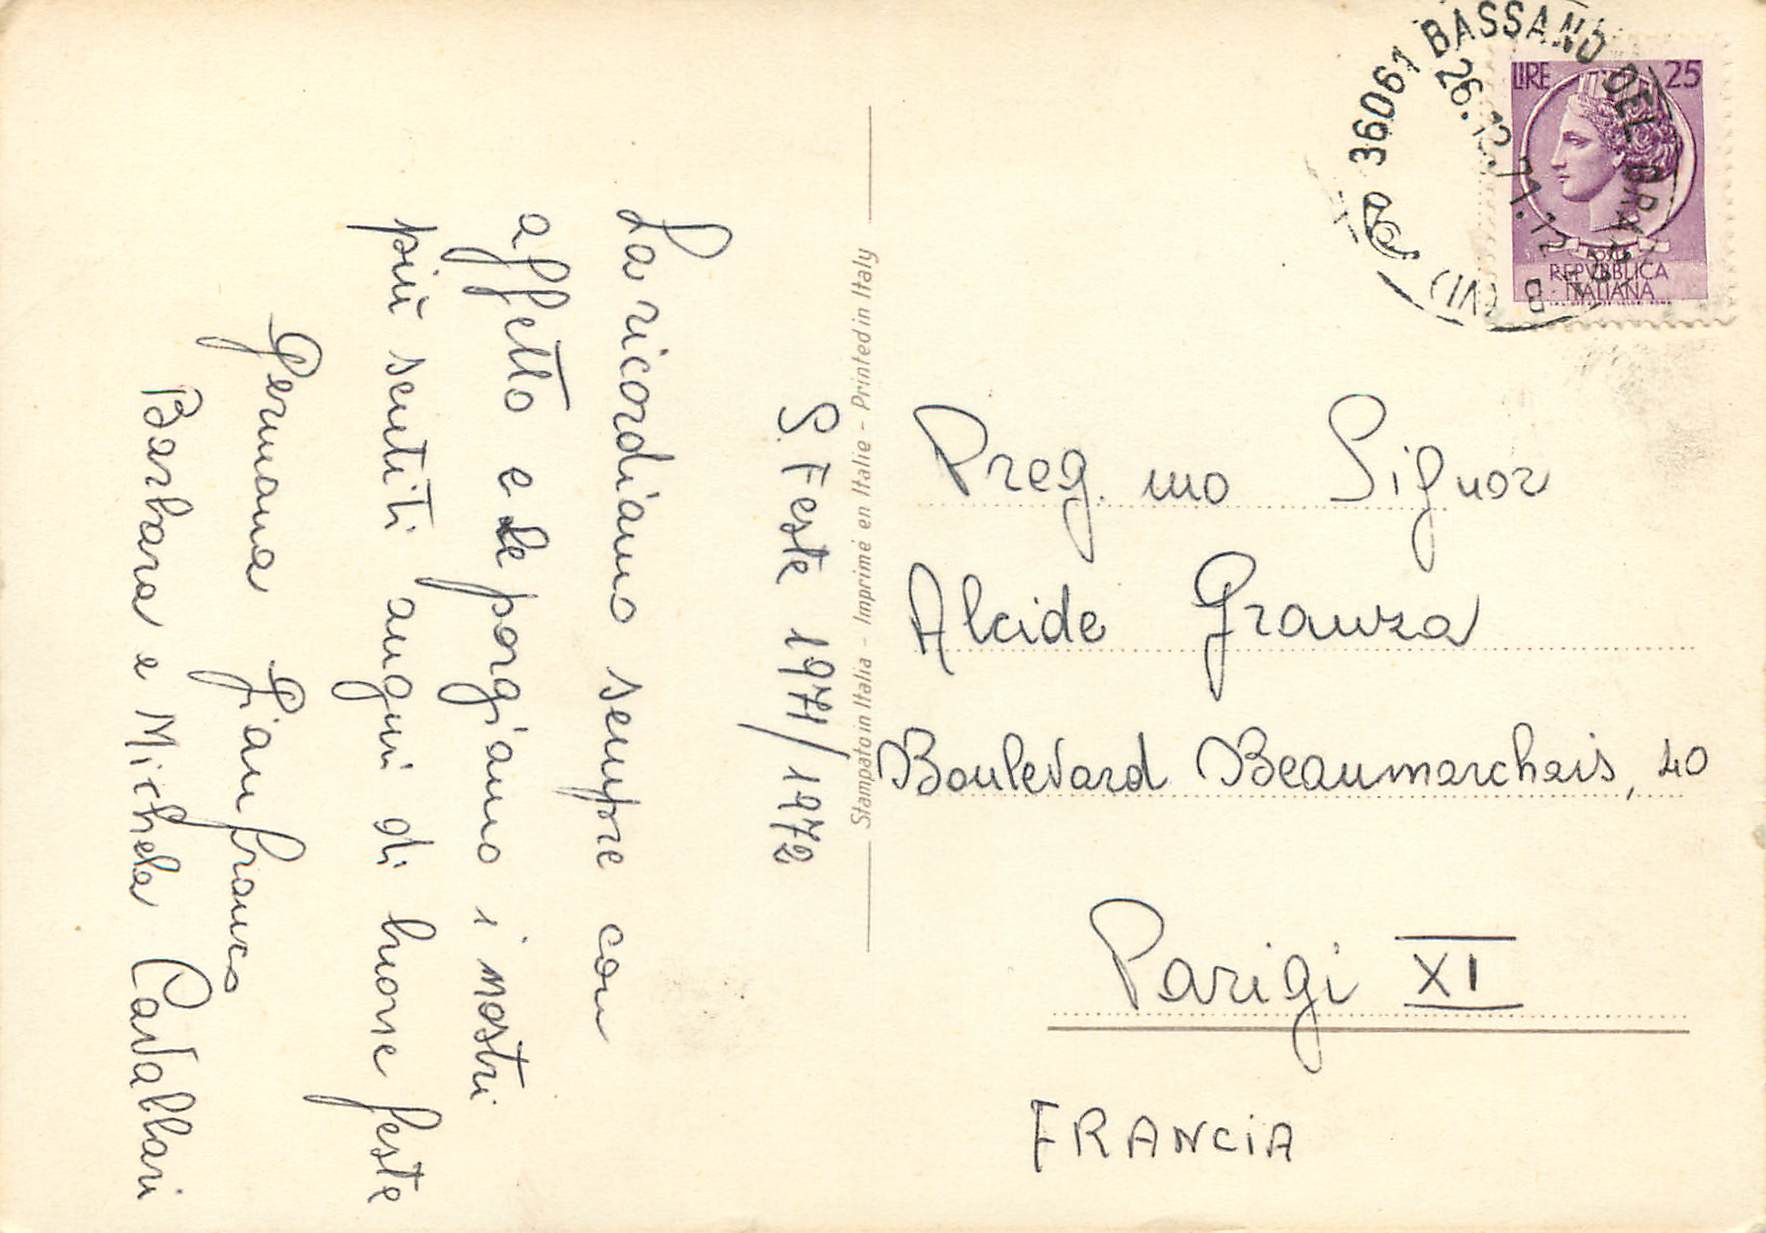 S. Feste 1971/1972
La ricordiamo sempre con
affetto e le porgiamo i nostri
più sentiti auguri di buone feste
Germana Gianfranco
Barbara e Michela Cavallari
Stampato in Italia - Imprimé en Italie - Printed in Italy
36061 BASSANO DEL GRAPPA
(VI)
26.12.71.12
B
LIRE 25
POSTE
REPVBBLICA
ITALIANA
Preg.mo Signor
Alcide Granza
Boulevard Beaumarchais, 40
Parigi XI
FRANCIA